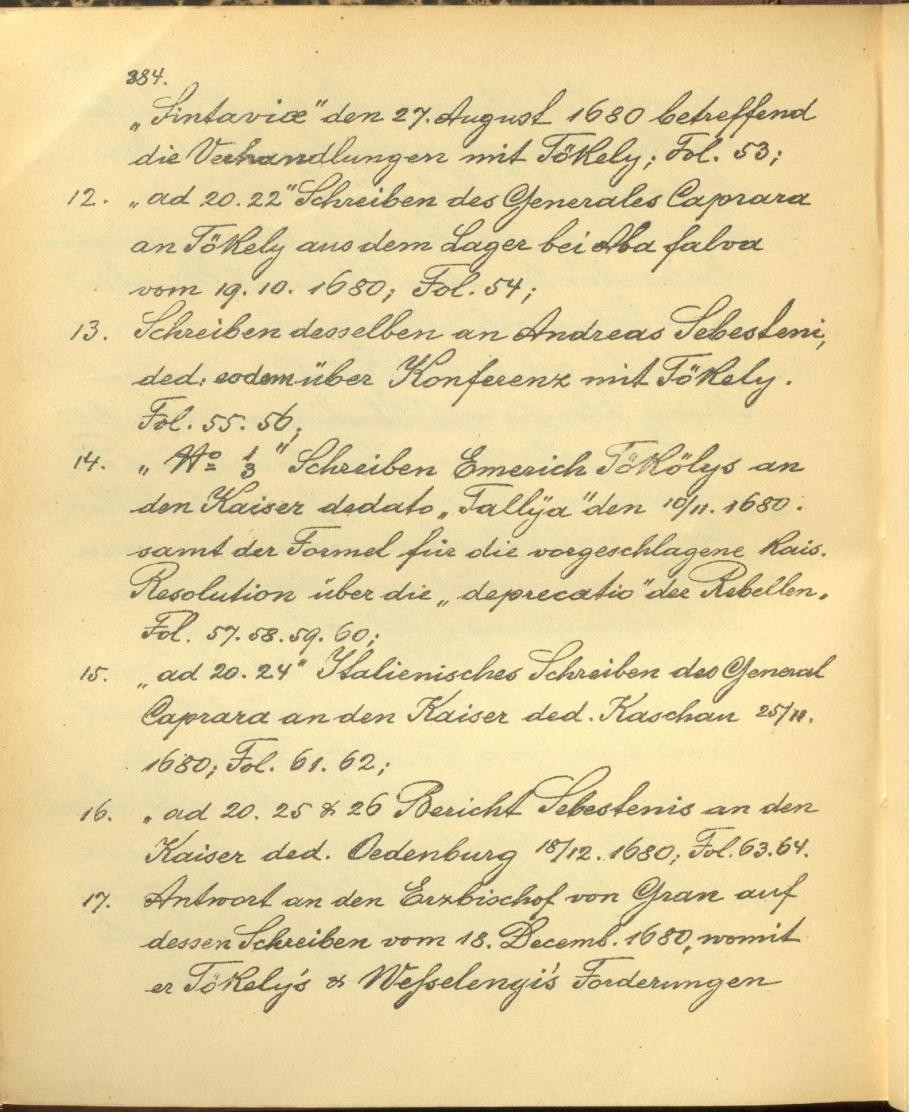 384.
„Sintaviæ" den 27. August 1680 betreffend
die Verhandlungen mit Tökely; Fol. 53;
12. „ad 20. 22" Schreiben des Generales Caprara
an Tökely aus dem Lager bei Aba falva
vom 19. 10. 1680; Fol. 54;
13. Schreiben desselben an Andreas Sebesteni,
ded: eodem über Konferenz mit Tökely.
Fol. 55. 56;
14. „No 1/3" Schreiben Emerich Tökölys an
den Kaiser dedato „Tallÿa" den 10/11. 1680.
samt der Formel für die vorgeschlagene Kais.
Resolution über die „deprecatio" der Rebellen.
Fol. 57. 58. 59. 60;
15. „ad 20. 24" Italienisches Schreiben des General
Caprara an den Kaiser ded. Kaschau 25/11.
1680; Fol. 61. 62;
16. „ad 20. 25 & 26 Bericht Sebestenis an den
Kaiser ded. Oedenburg 18/12. 1680; Fol. 63. 64.
17. Antwort an den Erzbischof von Gran auf
dessen Schreiben vom 18. Decemb. 1680, womit
er Tökely's & Weſselengi's Forderungen